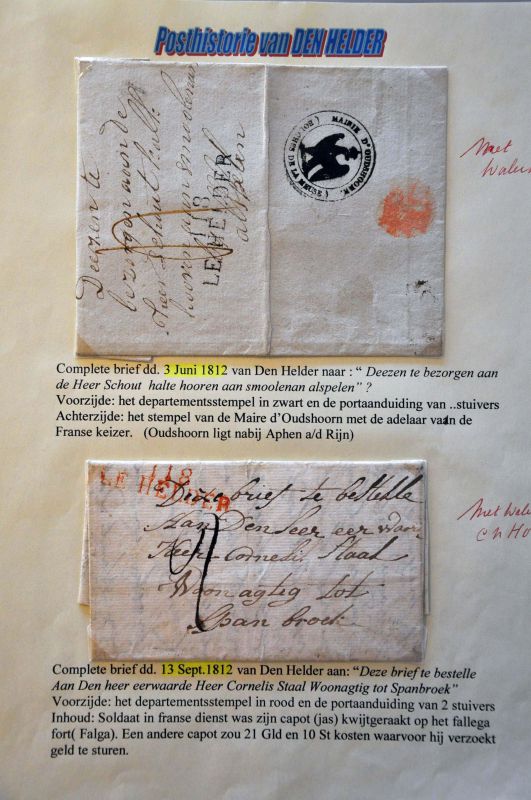 Posthistorie van DEN HELDER
Deezen te
bezorgen aan de
Heer Schout halte
hooren aan smoolenaan
alspelen
118
LE HELDER
MAIRIE D'OUDSHOORN.
(BOUCHES DE LA MEUSE)
Met
Complete brief dd. 3 Juni 1812 van Den Helder naar : “ Deezen te bezorgen aan
de Heer Schout halte hooren aan smoolenan alspelen” ?
Voorzijde: het departementsstempel in zwart en de portaanduiding van ..stuivers
Achterzijde: het stempel van de Maire d’Oudshoorn met de adelaar van de
Franse keizer. (Oudshoorn ligt nabij Aphen a/d Rijn)
118
LE HELDER
Deeze brief te bestelle
Aan Den Heer eer Waar
Heer Cornelis Staal
Woon agtig tot
Span broek
Met
Complete brief dd. 13 Sept.1812 van Den Helder aan: “Deze brief te bestelle
Aan Den heer eerwaarde Heer Cornelis Staal Woonagtig tot Spanbroek”
Voorzijde: het departementsstempel in rood en de portaanduiding van 2 stuivers
Inhoud: Soldaat in franse dienst was zijn capot (jas) kwijtgeraakt op het fallega
fort( Falga). Een andere capot zou 21 Gld en 10 St kosten waarvoor hij verzoekt
geld te sturen.